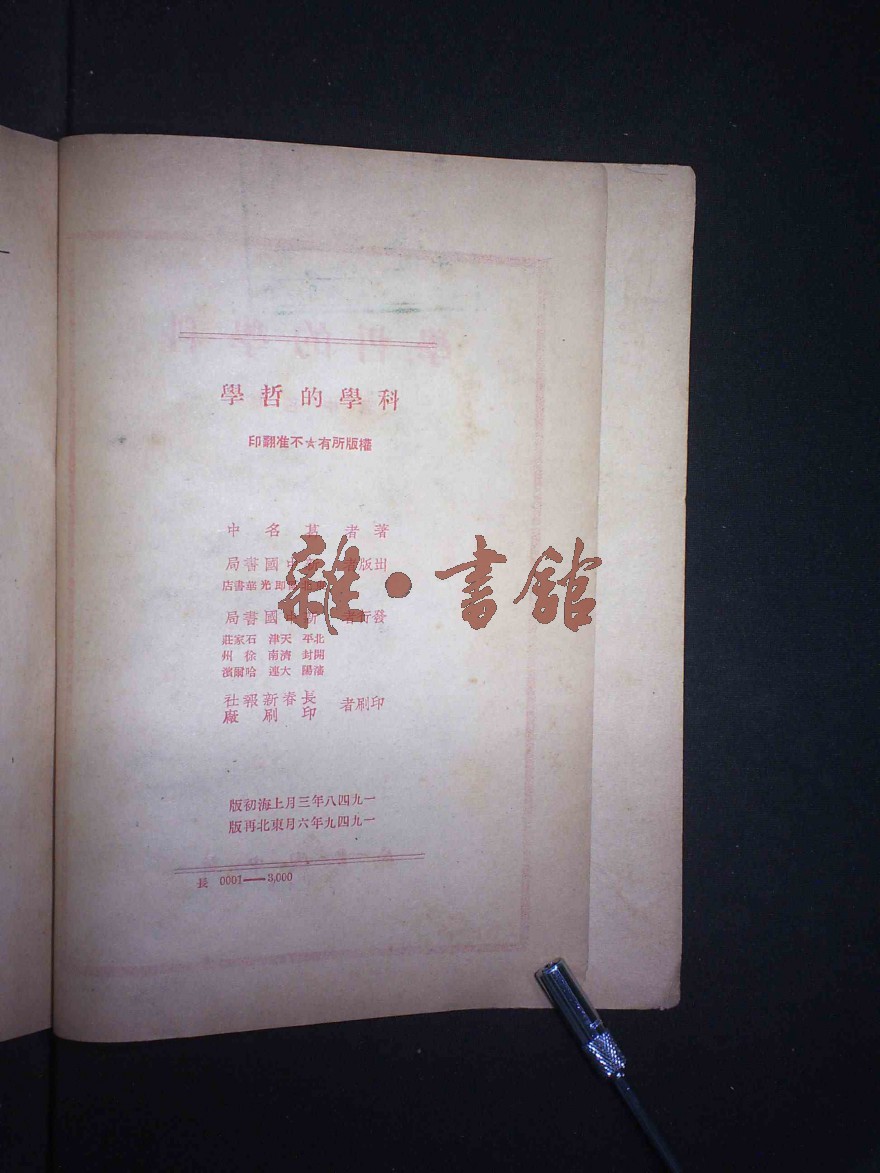 科學的哲學
權版所有★不准翻印
著者 葛名中
出版者 新中國書局
即光華書店
發行者 新中國書局
北平 天津 石家莊
開封 濟南 徐州
瀋陽 大連 哈爾濱
印刷者 長春新報社
印刷廠
一九四八年三月上海初版
一九四九年六月東北再版
長 0001—3,000
雜·書館